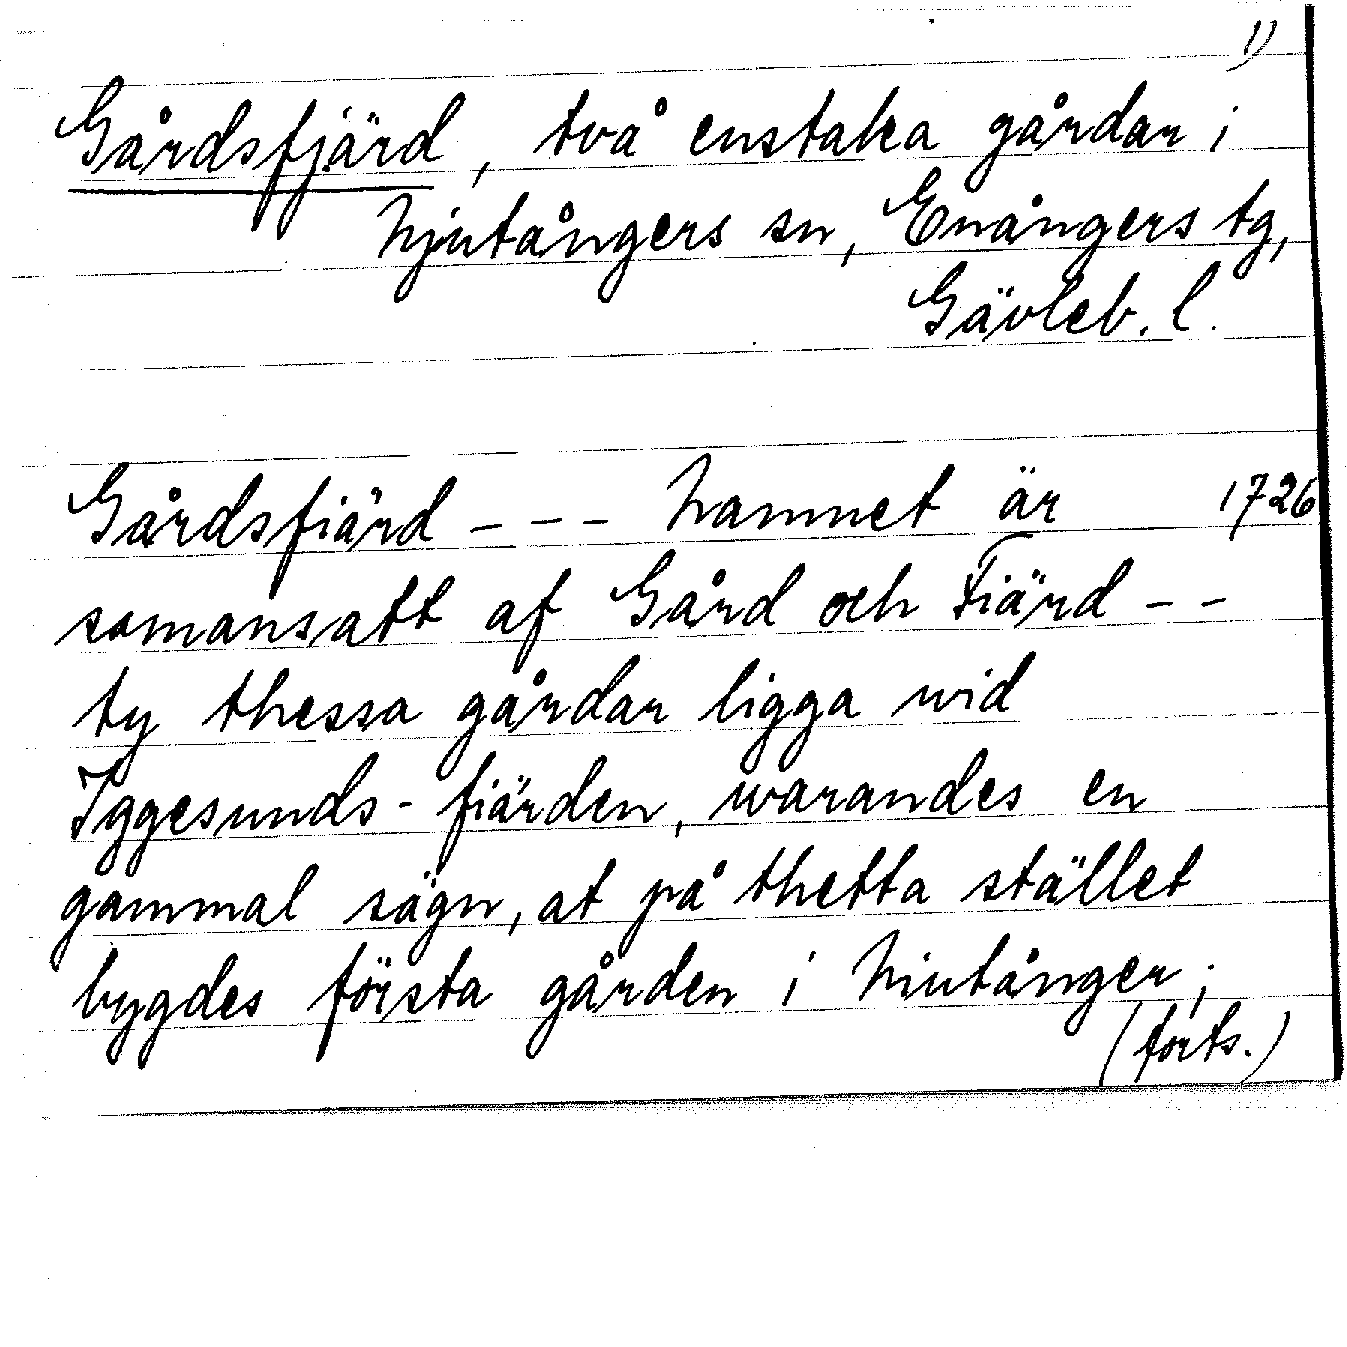 1)
Gårdsfjärd, två enstaka gårdar i
Njutångers sn, Enångers tg,
Gävleb. l.
Gårdsfiärd - - - Namnet är 1726
somansatt af Gård och Fiärd - -
ty thessa gårdar ligga wid
Iggesunds-fiärden, warandes en
gammal sägn, at på thetta stället
bygdes första gården i Niutånger;
(forts.)